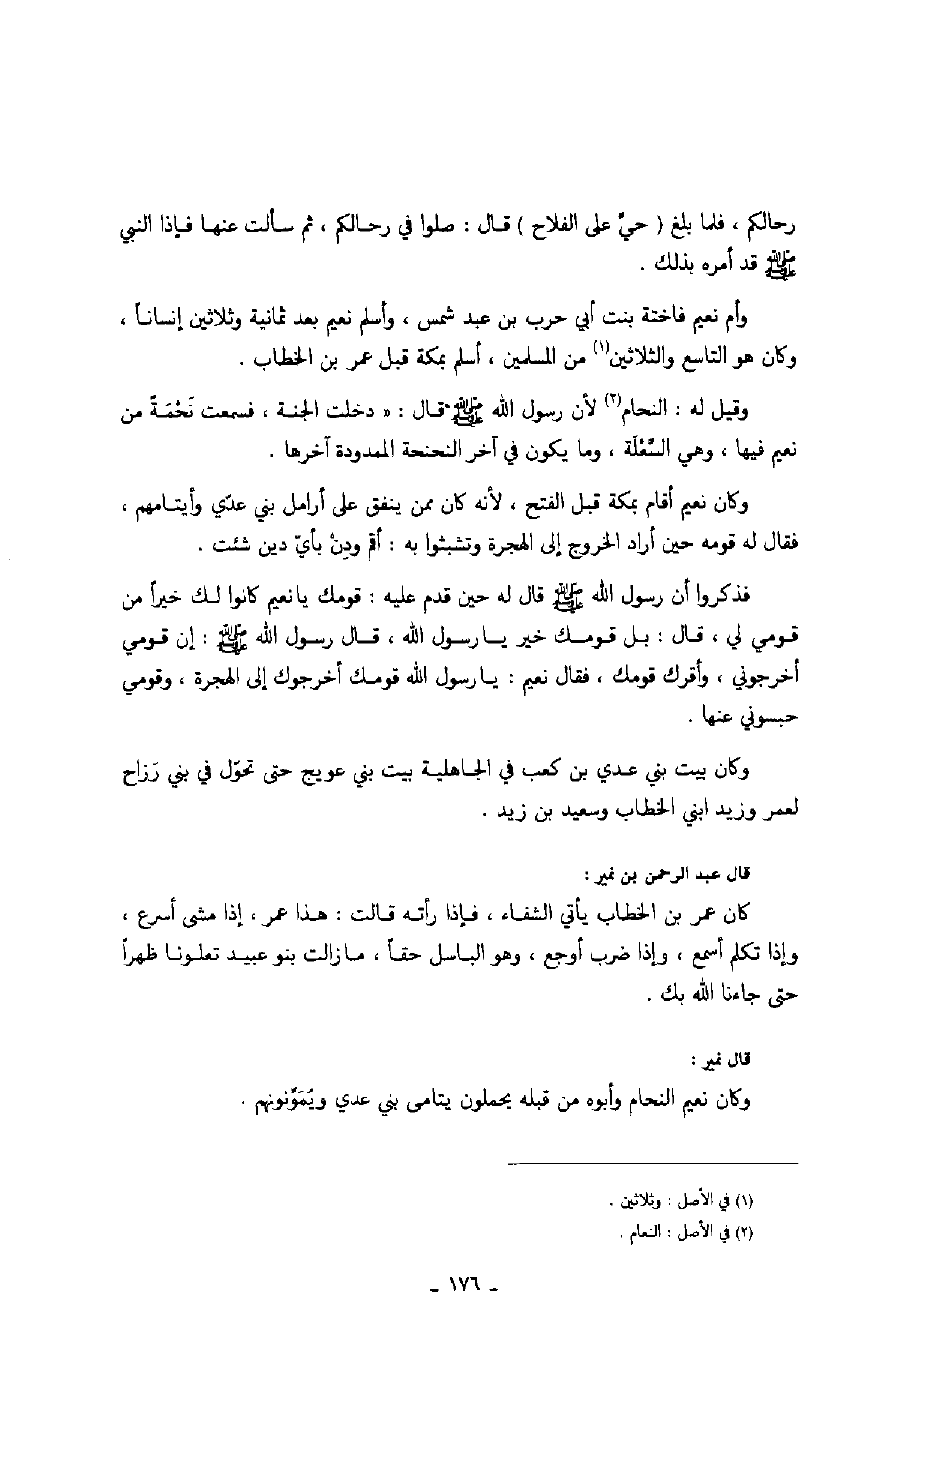 رحالكم ، فلما بلغ ( حيَّ على الفلاح ) قال : صلوا في رحالكم ، ثم سألت عنها فإذا النبي
ﷺ قد أمره بذلك .
وأم نعيم فاختة بنت أبي حرب بن عبد شمس ، وأسلم نعيم بعد ثمانية وثلاثين إنساناً ،
وكان هو التاسع والثلاثين(١) من المسلمين ، أسلم بمكة قبل عمر بن الخطاب .
وقيل له : النحام(٢) لأن رسول الله ﷺ قال : « دخلت الجنة ، فسمعت نَحْمَةً من
نعيم فيها ، وهي السَّعْلَة ، وما يكون في آخر النحنحة الممدودة آخرها .
وكان نعيم أقام بمكة قبل الفتح ، لأنه كان ممن ينفق على أرامل بني عديّ وأيتامهم ،
فقال له قومه حين أراد الخروج إلى الهجرة وتشبثوا به : أقم ودِنْ بأيّ دين شئت .
فذكروا أن رسول الله ﷺ قال له حين قدم عليه : قومك يا نعيم كانوا لك خيراً من
قومي لي ، قال : بل قومك خير يا رسول الله ، قال رسول الله ﷺ : إن قومي
أخرجوني ، وأقرك قومك ، فقال نعيم : يا رسول الله قومك أخرجوك إلى الهجرة ، وقومي
حبسوني عنها .
وكان بيت بني عدي بن كعب في الجاهلية بيت بني عويج حتى تحوّل في بني رَزاح
لعمر وزيد ابني الخطاب وسعيد بن زيد .
قال عبد الرحمن بن نمير :
كان عمر بن الخطاب يأتي الشفاء ، فإذا رأته قالت : هذا عمر ، إذا مشى أسرع ،
وإذا تكلم أسمع ، وإذا ضرب أوجع ، وهو الباسل حقاً ، ما زالت بنو عبيد تعلونا ظهراً
حتى جاءنا الله بك .
قال نمير :
وكان نعيم النحام وأبوه من قبله يحملون يتامى بني عدي ويُمَوّنونهم .
(١) في الأصل : وثلاثين .
(٢) في الأصل : النعام .
ـ ١٧٦ ـ